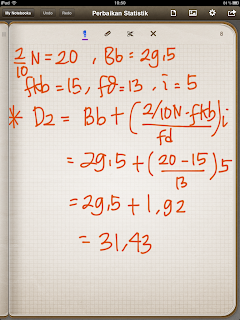 iPad 10:50 81%
My Notebooks Undo Redo Perbaikan Statistik
8
2/10 N = 20 , Bb = 29,5
fkb = 15, fd = 13, i = 5
* D2 = Bb + (2/10N - fkb / fd) i
= 29,5 + (20 - 15 / 13) 5
= 29,5 + 1,92
= 31,43